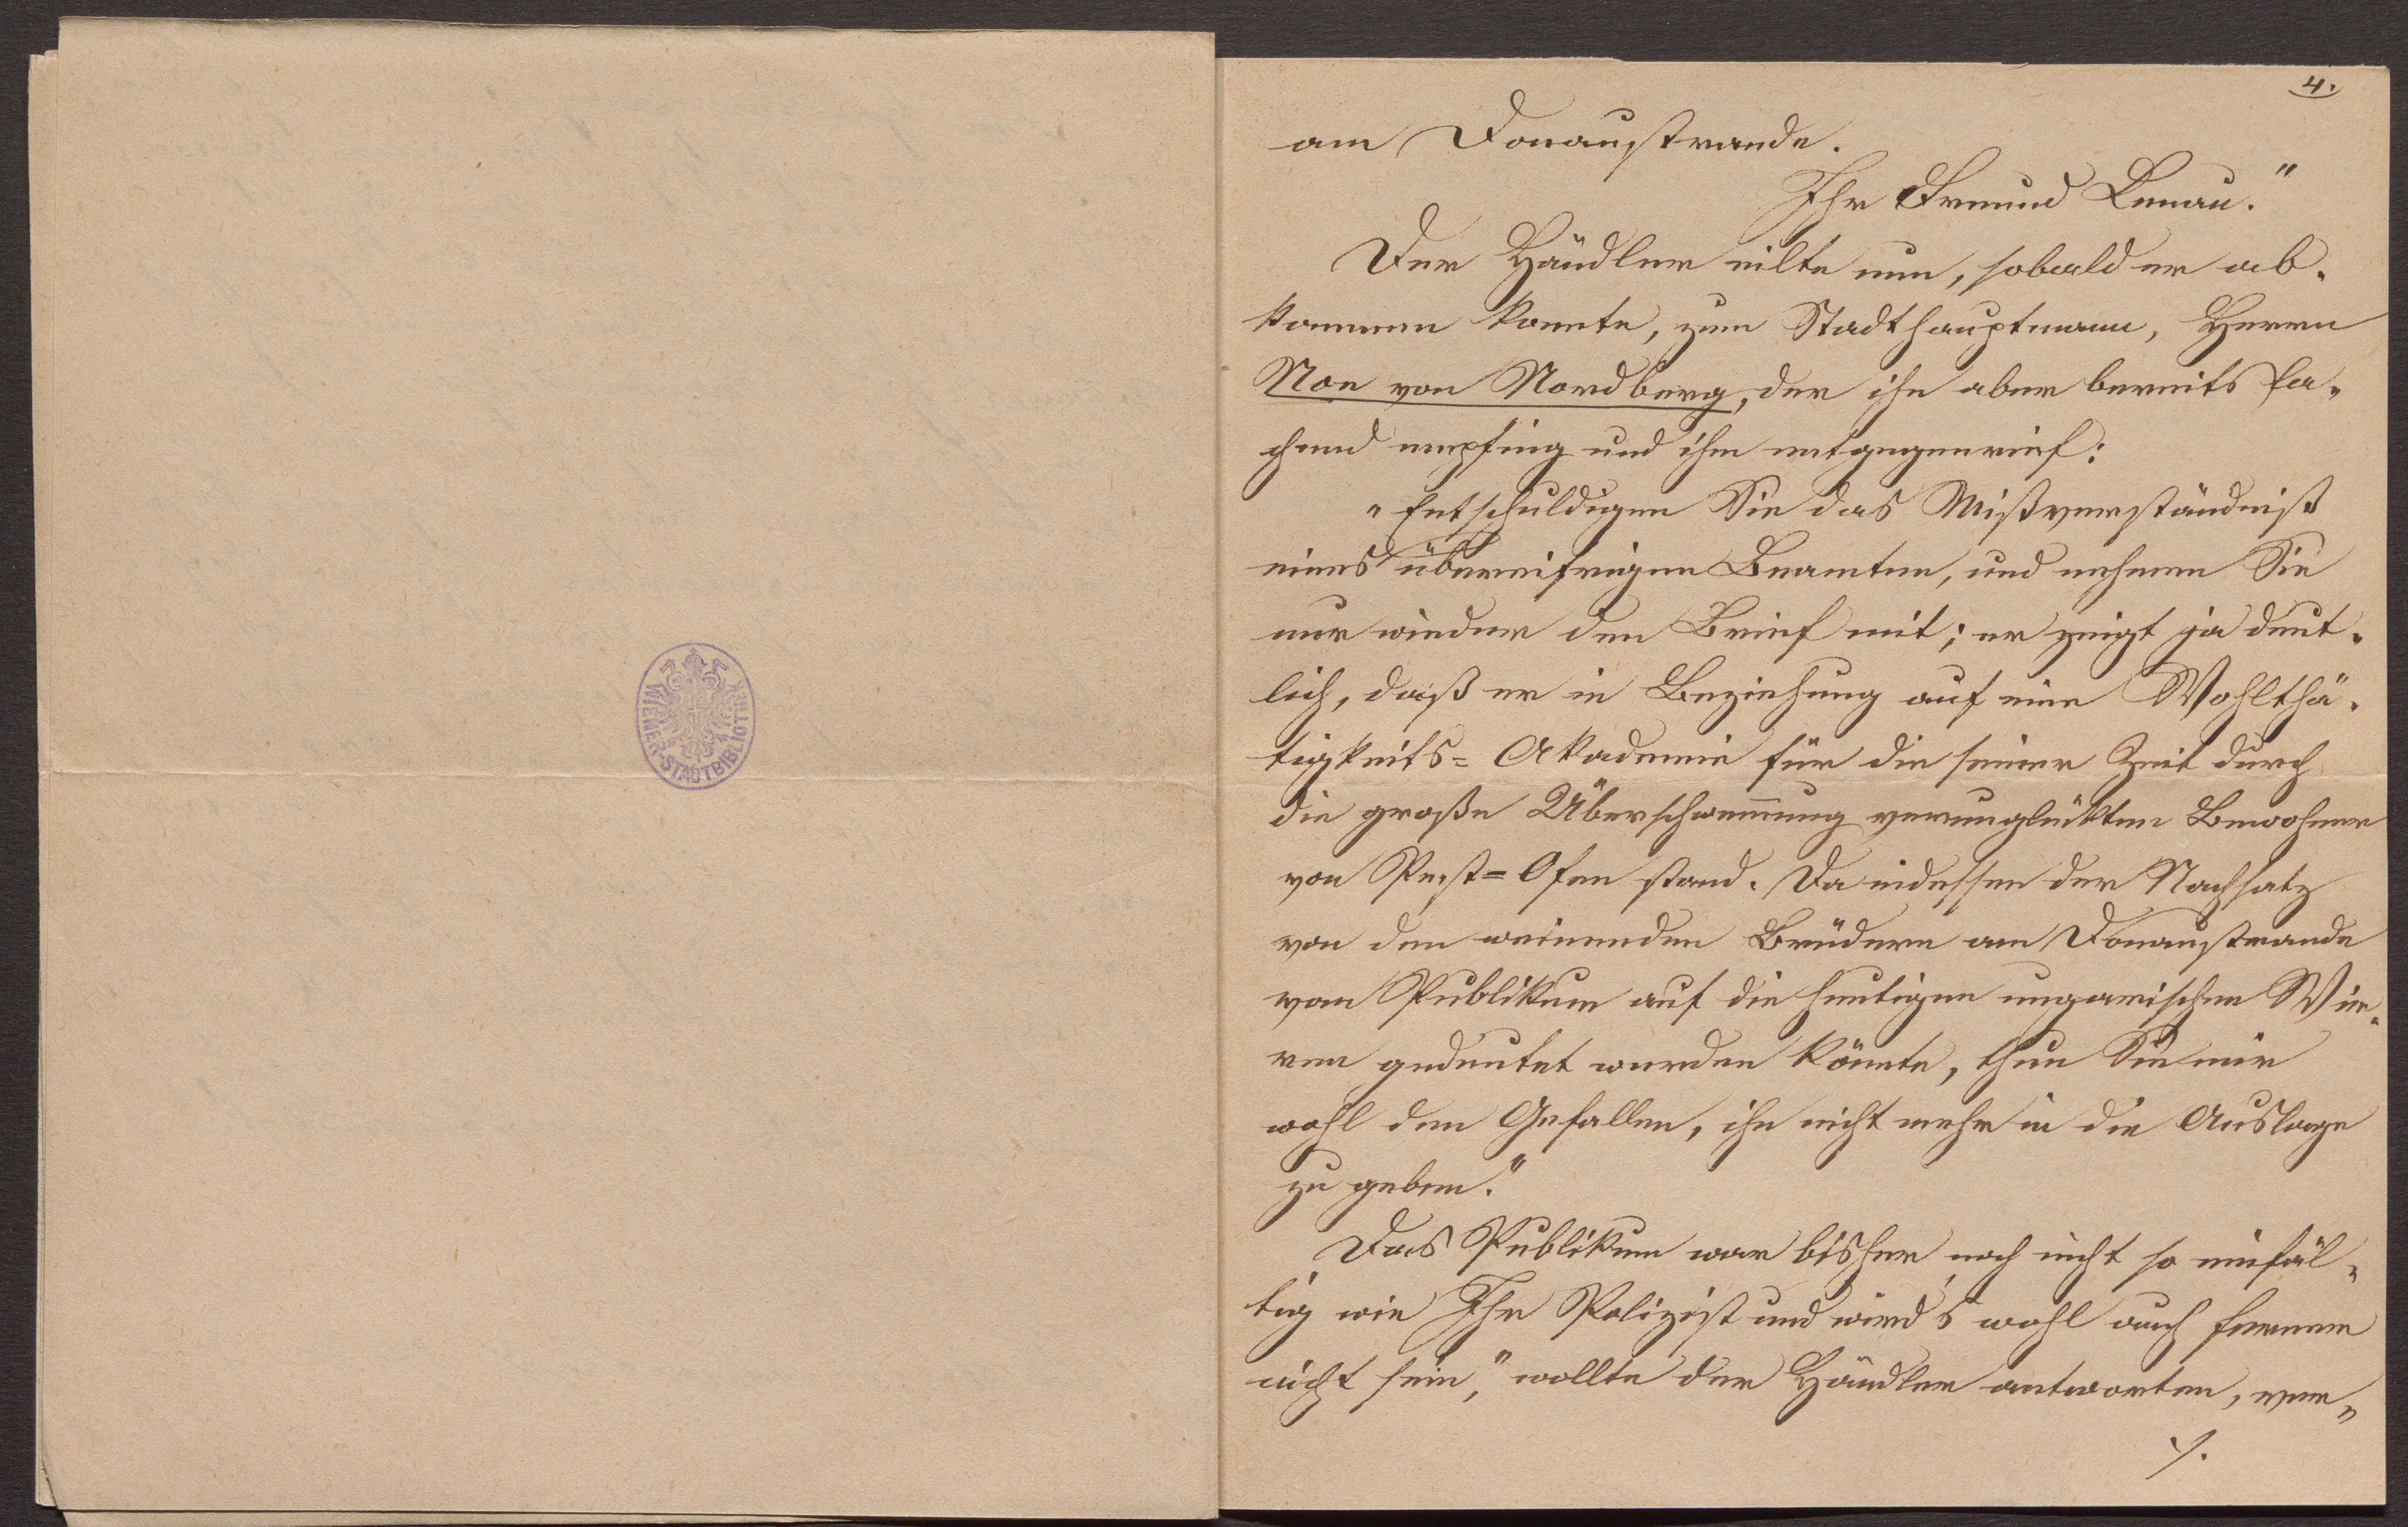 4.
am Donaustrande.
Ihr Freund Lenau."
Der Händler eilte nun, sobald er ab-
kommen konnte, zum Stadthauptmann, Herrn
Noe von Nordberg, der ihn aber bereits la-
chend empfing und ihm entgegenrief:
"Entschuldigen Sie das Mißverständniß
eines übereifrigen Beamten, und nehmen Sie
nur wieder den Brief mit; er zeigt ja deut-
lich, daß er in Beziehung auf eine Wohlthä-
tigkeits=Akademie für die seiner Zeit durch
die große Überschwem̅ung verunglückten Bewohner
von Pest=Ofen stand. Da indessen der Nachsatz
von den weinenden Brüdern am Donaustrande
vom Publikum auf die heutigen ungarischen Wir-
ren gedeutet werden könnte, thun Sie mir
wohl den Gefallen, ihn nicht mehr in die Auslage
zu geben."
Das Publikum war bisher noch nicht so einfäl-
tig wie Ihr Polizist und wird's wohl auch ferner
nicht sein," wollte der Händler antworten, ver-
./.
WIENER-STADTBIBLIOTHEK